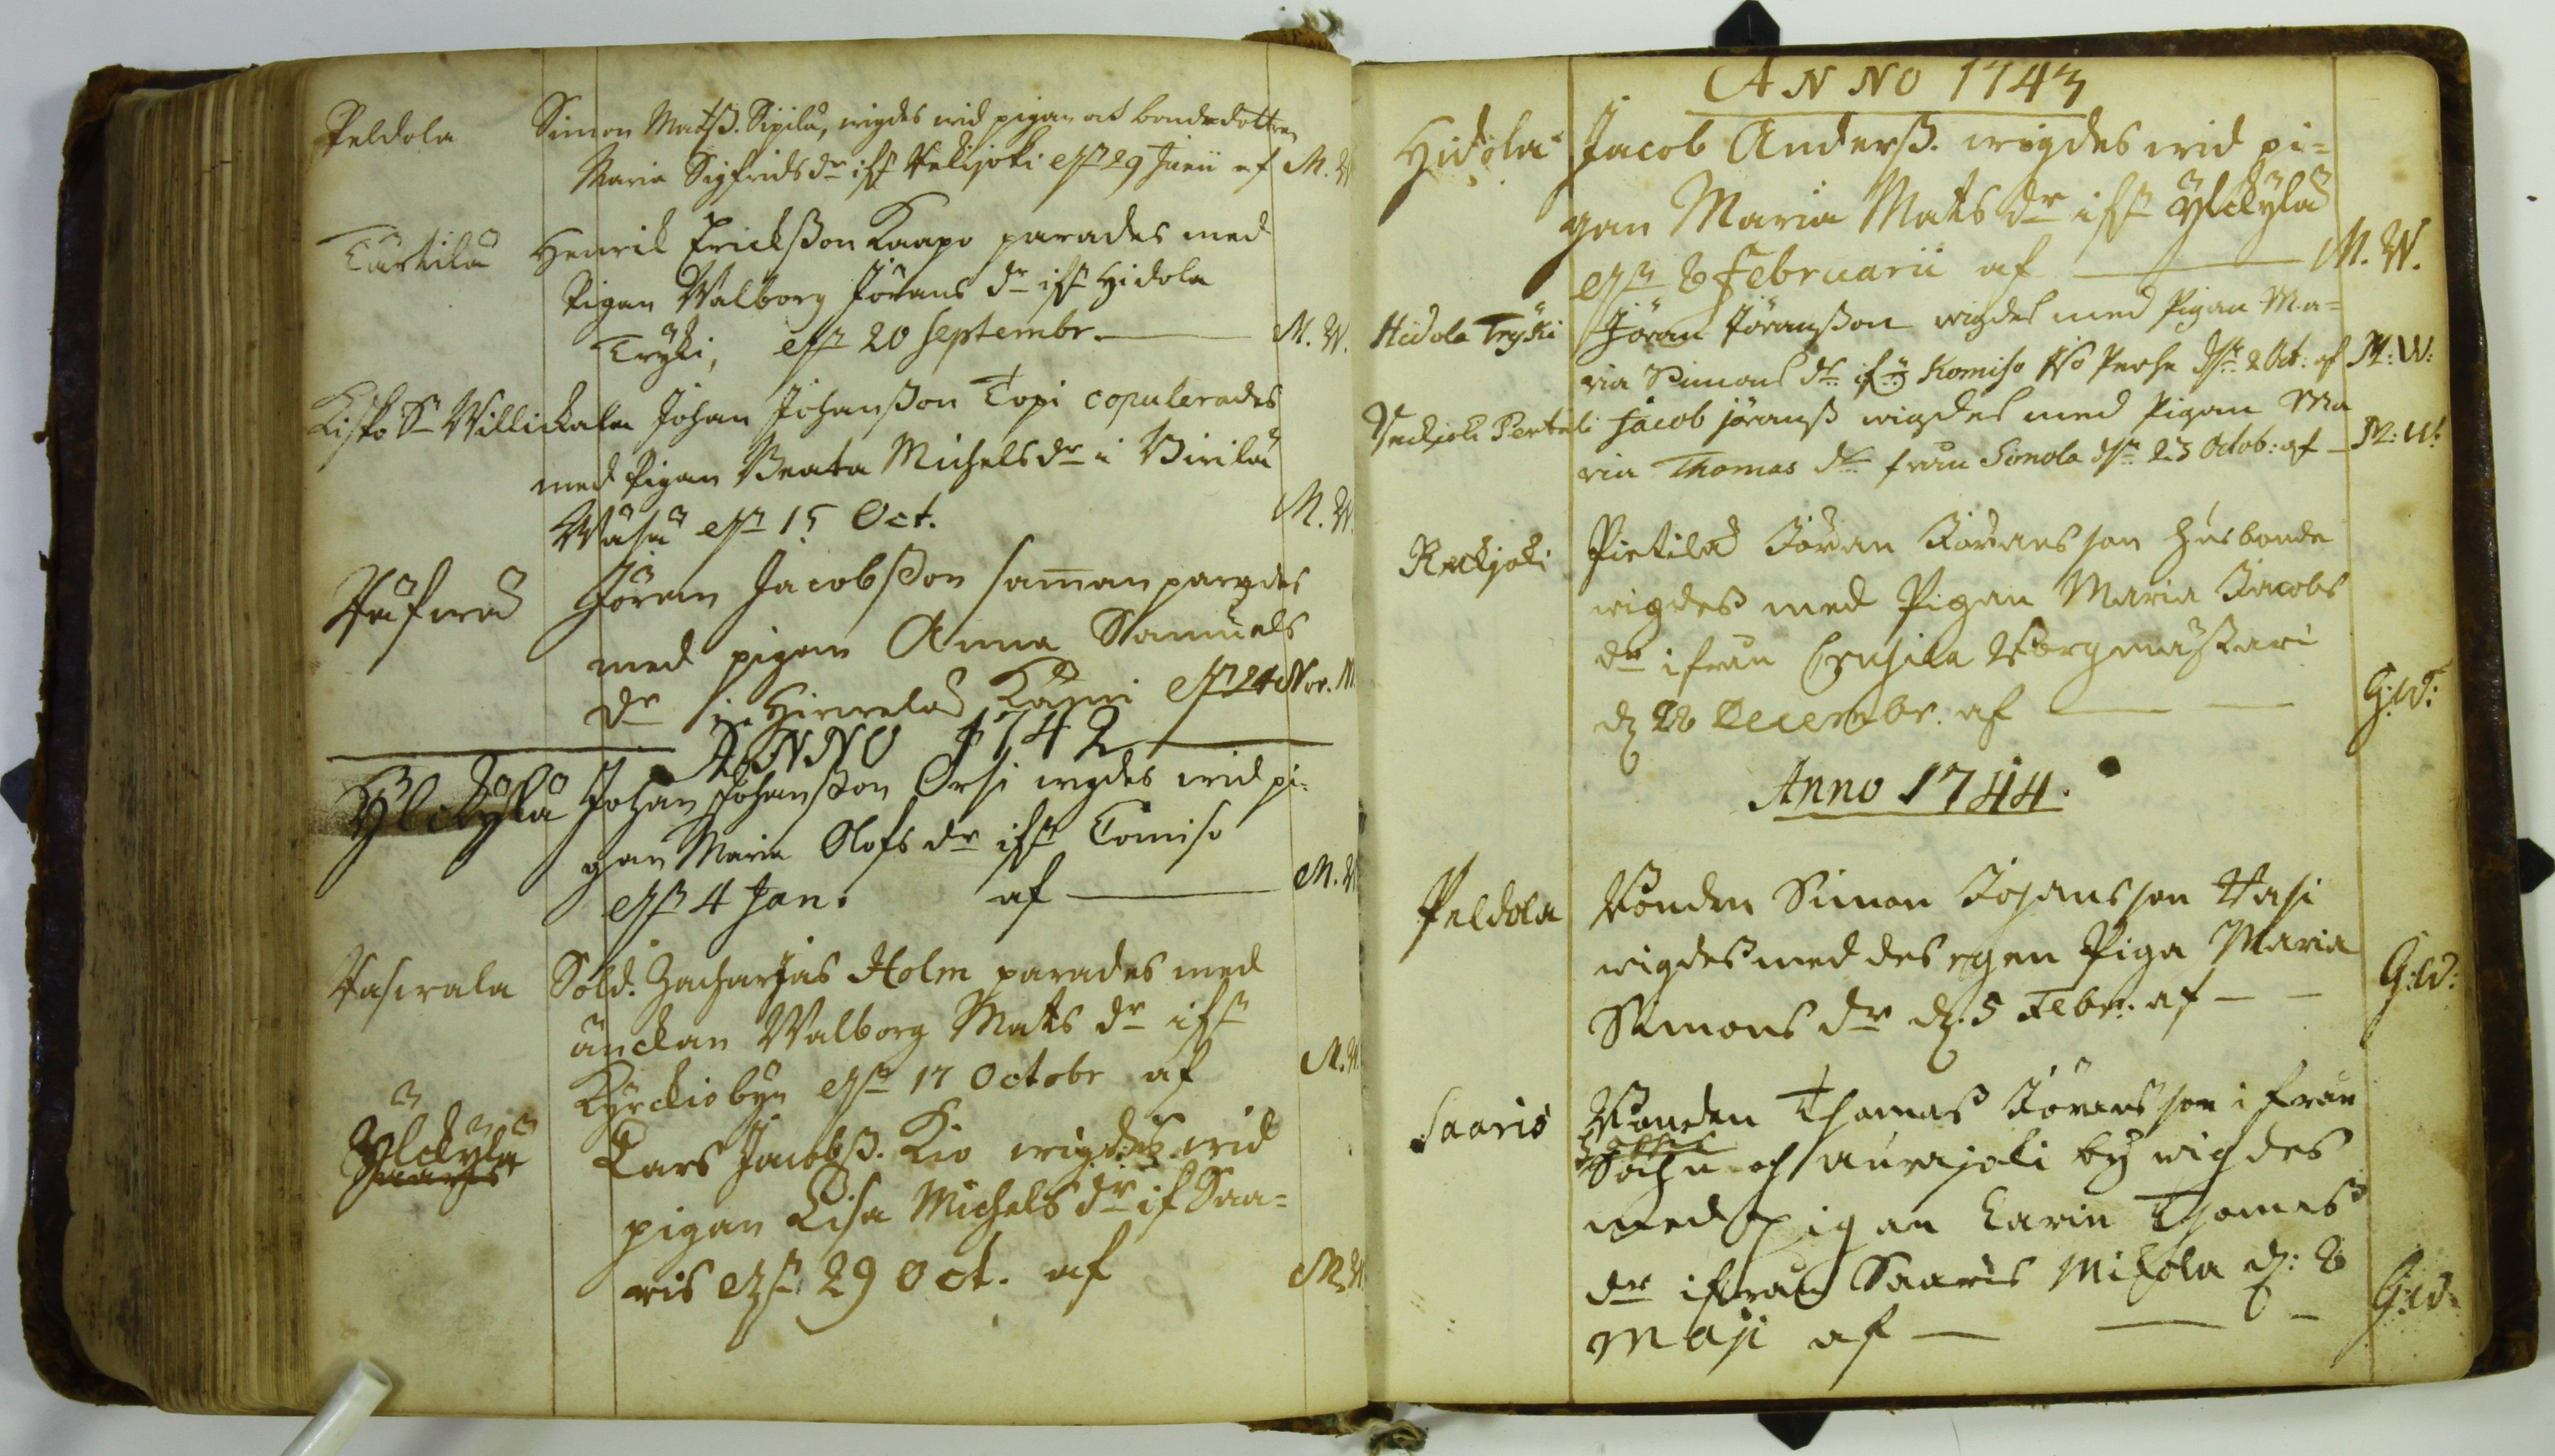 Peldola Simon Matß. Sipilä, wigdes wid pigan och bondedottren
Maria Sigfridsdr ifr Wekijoki 29 Junii af M. W
Turkila Henrik Erickßon Kaapo parades med
Pigan Walborg Jörans dr ifr Hidola
Tryki, 20 Septembr. M. W.
Johan Johanßon Topi copulerades
med Pigan Beata Michelsdr i Virilä
Wäsä 15 Oct. M. W.
Jöran Jacobßon samanparades
med pigan Anna Samuels
dr Hirvelä 24 Nov. M.
ANNO 1742
Ylckylä Johan Johanßon Orhi wigdes wid pi-
gan Maria Olofs dr ifr Tomiso
4 Jan. af M. W
Vaskala Sold. Zacharias Holm parades med
änckan Walborg Mats dr ifr
Kyrckiobyn 17 Octobr af M. W.
Ylckylä Lars Jacobß. Kio wigdes wid
Saaris
pigan Lisa Michels dr if Saa=
ris 29 Oct. af M. W
ANNO 1743
Hidola Jacob Anderß. wigdes wid pi=
gan Maria Mats dr ifr Ylckylä
8 Februarii af M. W.
Hidola Tryki Jöran Jöranßon wigdes med Pigan Ma=
ria Simons dr Komiso 2 Oct: af M: W:
Jacob Jöranß wigdes med Pigan Ma
ria Thomas dr från Simola 23 Octob: af M: W:
Reckjoki Pietilä Jöran Jöransson husbonde
wigdes med Pigan Maria Jacobs
dr ifrån Borgmästari
d 28 Decembr. af G: W:
Anno 1744.
Peldola Bonden Simon Johansson Vasi
wigdes med des egen Piga Maria
Simons dr d. 5 Febr: af G: W:
Saaris Bonden Thomas Jöransson ifrån
Sockn och Aurajoki by wigdes
med Pigan Carin Thomas
dr ifrån Saaris Mikola d: 8
Maji af G: W: